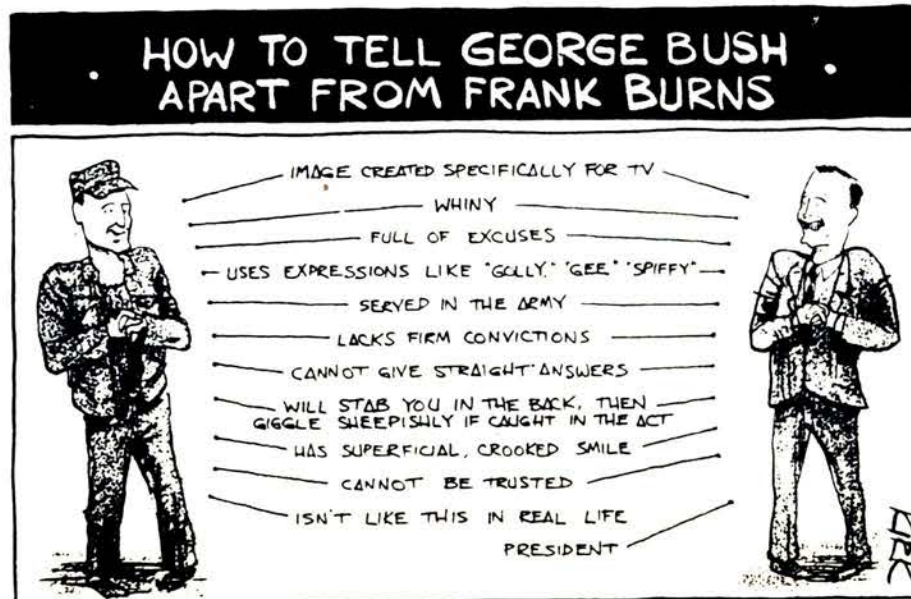 HOW TO TELL GEORGE BUSH
APART FROM FRANK BURNS
IMAGE CREATED SPECIFICALLY FOR TV
WHINY
FULL OF EXCUSES
USES EXPRESSIONS LIKE "GOLLY," "GEE" "SPIFFY"
SERVED IN THE ARMY
LACKS FIRM CONVICTIONS
CANNOT GIVE STRAIGHT ANSWERS
WILL STAB YOU IN THE BACK, THEN
GIGGLE SHEEPISHLY IF CAUGHT IN THE ACT
HAS SUPERFICIAL, CROOKED SMILE
CANNOT BE TRUSTED
ISN'T LIKE THIS IN REAL LIFE
PRESIDENT
KIRK